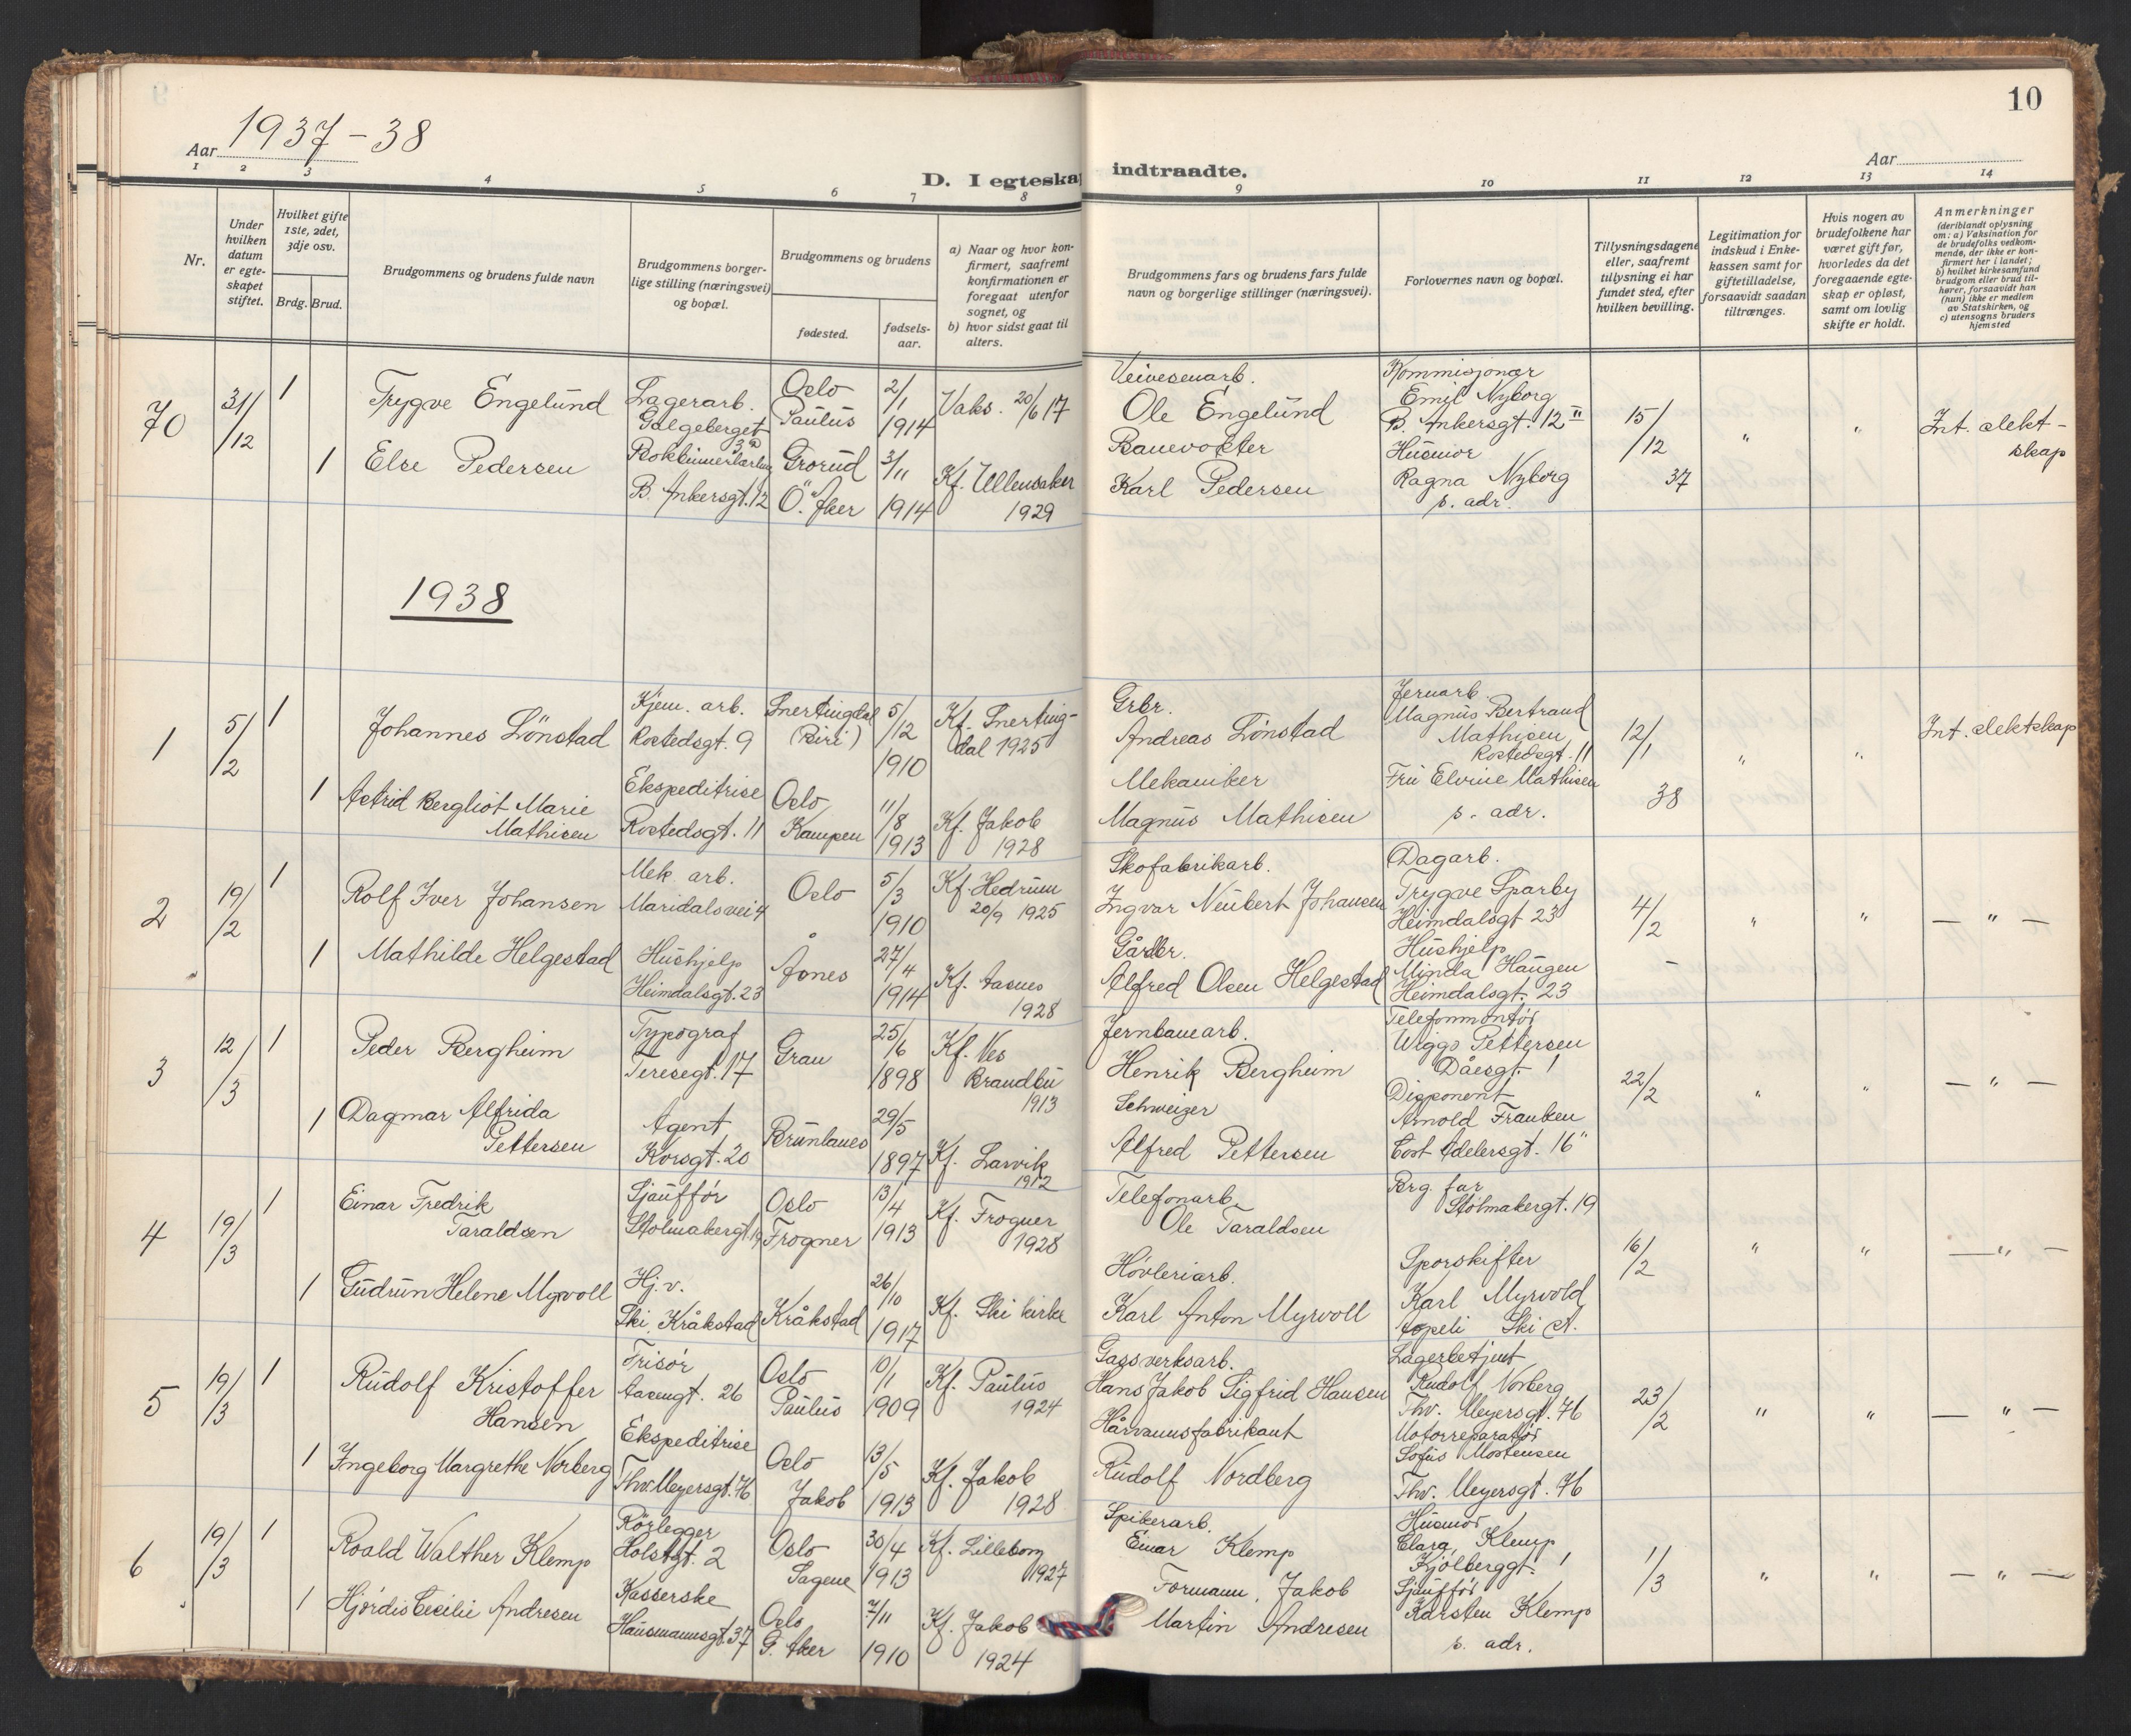 1937-38
Aar
10
Aar
D. I egteskap
indtraadte.
1 2 3 4 5 6 7 8 9 10 11 12 13 14
Nr.
Under hvilken datum er egteskapet stiftet.
Hvilket gifte 1ste, 2det, 3dje osv.
Brdg. Brud.
Brudgommens og brudens fulde navn
Brudgommens borgerlige stilling (næringsvei) og bopæl.
Brudgommens og brudens
fødested.
fødselsaar.
a) Naar og hvor konfirmert, saafremt konfirmationen er foregaat utenfor sognet, og
b) hvor sidst gaat til alters.
Brudgommens fars og brudens fars fulde navn og borgerlige stillinger (næringsvei).
Forlovernes navn og bopæl.
Tillysningsdagene eller, saafremt tillysning ei har fundet sted, efter hvilken bevilling.
Legitimation for indskud i Enkekassen samt for giftetilladelse, forsaavidt saadan tiltrænges.
Hvis nogen av brudefolkene har været gift før, hvorledes da det foregaaende egteskap er opløst, samt om lovlig skifte er holdt.
Anmerkninger (deriblandt oplysning om: a) Vaksination for de brudefolks vedkommende, der ikke er konfirmert her i landet; b) hvilket kirkesamfund brudgom eller brud tilhører, forsaavidt han (hun) ikke er medlem av Statskirken, og c) utensogns bruders hjemsted
70
31/12
1
Trygve Engelund
Lagerarb.
Galgeberget 3a
Oslo
Paulus
2/1 1914
Vaks. 20/6 17
Veivesenarb.
Ole Engelund
Kommisjonær
Emil Nyborg
B. Ankersgt. 12 II
15/12 37
"
"
Int. slektskap
1
Else Pedersen
B. Ankersgt. 12
Grorud
Ö. Aker
3/11 1914
Kf. Ullensaker
1929
Banevokter
Karl Pedersen
Husmor
Ragna Nyborg
s. adr.
1938
1
5/2
1
Johannes Lönstad
Kjem. arb.
Rostedsgt. 9
Snertingdal
(Biri)
5/12 1910
Kf. Snertingdal 1925
Grbr.
Andreas Lönstad
Jernarb.
Magnus Bertrand
Mathisen
Rostedsgt. 11
12/1 38
"
"
Int. slektskap
1
Astrid Bergliot Marie
Mathisen
Ekspeditrise
Rostedsgt. 11
Oslo
Kampen
11/8 1913
Kf. Jakob
1928
Mekaniker
Magnus Mathisen
Fru Elvine Mathisen
s. adr.
2
19/2
1
Rolf Iver Johansen
Mek. arb.
Maridalsvei 4
Oslo
5/3 1910
Kf. Hedrum
20/9 1925
Skofabrikarb.
Ingvar Neubert Johansen
Dagarb.
Trygve Sparby
Heimdalsgt 23
4/2
"
"
— " —
1
Mathilde Helgestad
Hushjelp
Heimdalsgt. 23
Åsnes
27/4 1914
Kf. Aasnes
1928
Gårdbr.
Alfred Olsen Helgestad
Hushjelp
Minda Haugen
Heimdalsgt. 23
3
12/3
1
Peder Bergheim
Typograf
Teresegt. 17
Gran
25/6 1898
Kf. Nes
Brandbu
1913
Jernbanearb.
Henrik Bergheim
Telefonmontør
Wiggo Pettersen
Dåesgt. 1
22/2
"
"
— " —
1
Dagmar Alfrida
Pettersen
Agent
Korsgt. 20
Brunlanes
29/5 1897
Kf. Larvik
1912
Schweizer
Alfred Pettersen
Disponent
Arnold Franken
Cort Adelersgt. 16"
4
19/3
1
Einar Fredrik
Taraldsen
Sjåufför
Stolmakergt. 19
Oslo
Frogner
13/4 1913
Kf. Frogner
1928
Telefonarb.
Ole Taraldsen
Brg. far
Stolmakergt. 19
16/2
"
"
— " —
1
Gudrun Helene Myrvoll
Hj. v.
Ski, Kråkstad
Kråkstad
26/10 1917
Kf. Ski kirke
Høvleriarb.
Karl Anton Myrvoll
Sporskifter
Karl Myrvold
Ski st.
5
19/3
1
Rudolf Kristoffer
Hansen
Frisör
Aasengt. 26
Oslo
Paulus
10/1 1909
Kf. Paulus
1924
Gassverksarb.
Hans Jakob Sigfrid Hansen
Lagerbetjent
Rudolf Norberg
Thv. Meyersgt. 76
23/2
"
"
— " —
1
Ingeborg Margrethe Norberg
Ekspeditrise
Thv. Meyersgt. 76
Oslo
Jakob
13/5 1913
Kf. Jakob
1928
Hårvannsfabrikant
Rudolf Nordberg
Motorreparatør
Sofus Mortensen
Thv. Meyersgt. 76
6
19/3
1
Roald Walther Klemp
Rörlegger
Holstgt. 2
Oslo
Sagene
30/4 1913
Kf. Lilleborg
1927
Spikerarb.
Einar Klemp
Husmor
Clara Klemp
Kjölberggt. 1
1/3
"
"
— " —
1
Hjördis Cecilie Andresen
Kasserske
Hausmannsgt. 37
Oslo
G. Aker
7/11 1910
Kf. Jakob
1924
Formann, Jakob
Martin Andresen
Sjåufför
Karsten Klemp
s. adr.